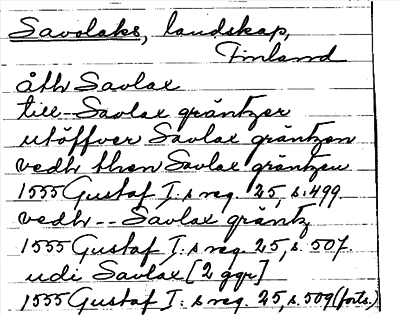 Savolaks, landskap,
Finland
åth Savlax
till - Savlax gräntzer
utöffver Savlax gräntzen
vedh then Savlax gräntzen
1555 Gustaf I:s reg. 25, s. 499.
vedh - - Savlax gräntz
1555 Gustaf I:s reg. 25, s. 507.
udi Savlax [2 ggr]
1555 Gustaf I:s reg. 25, s. 509 (forts.)